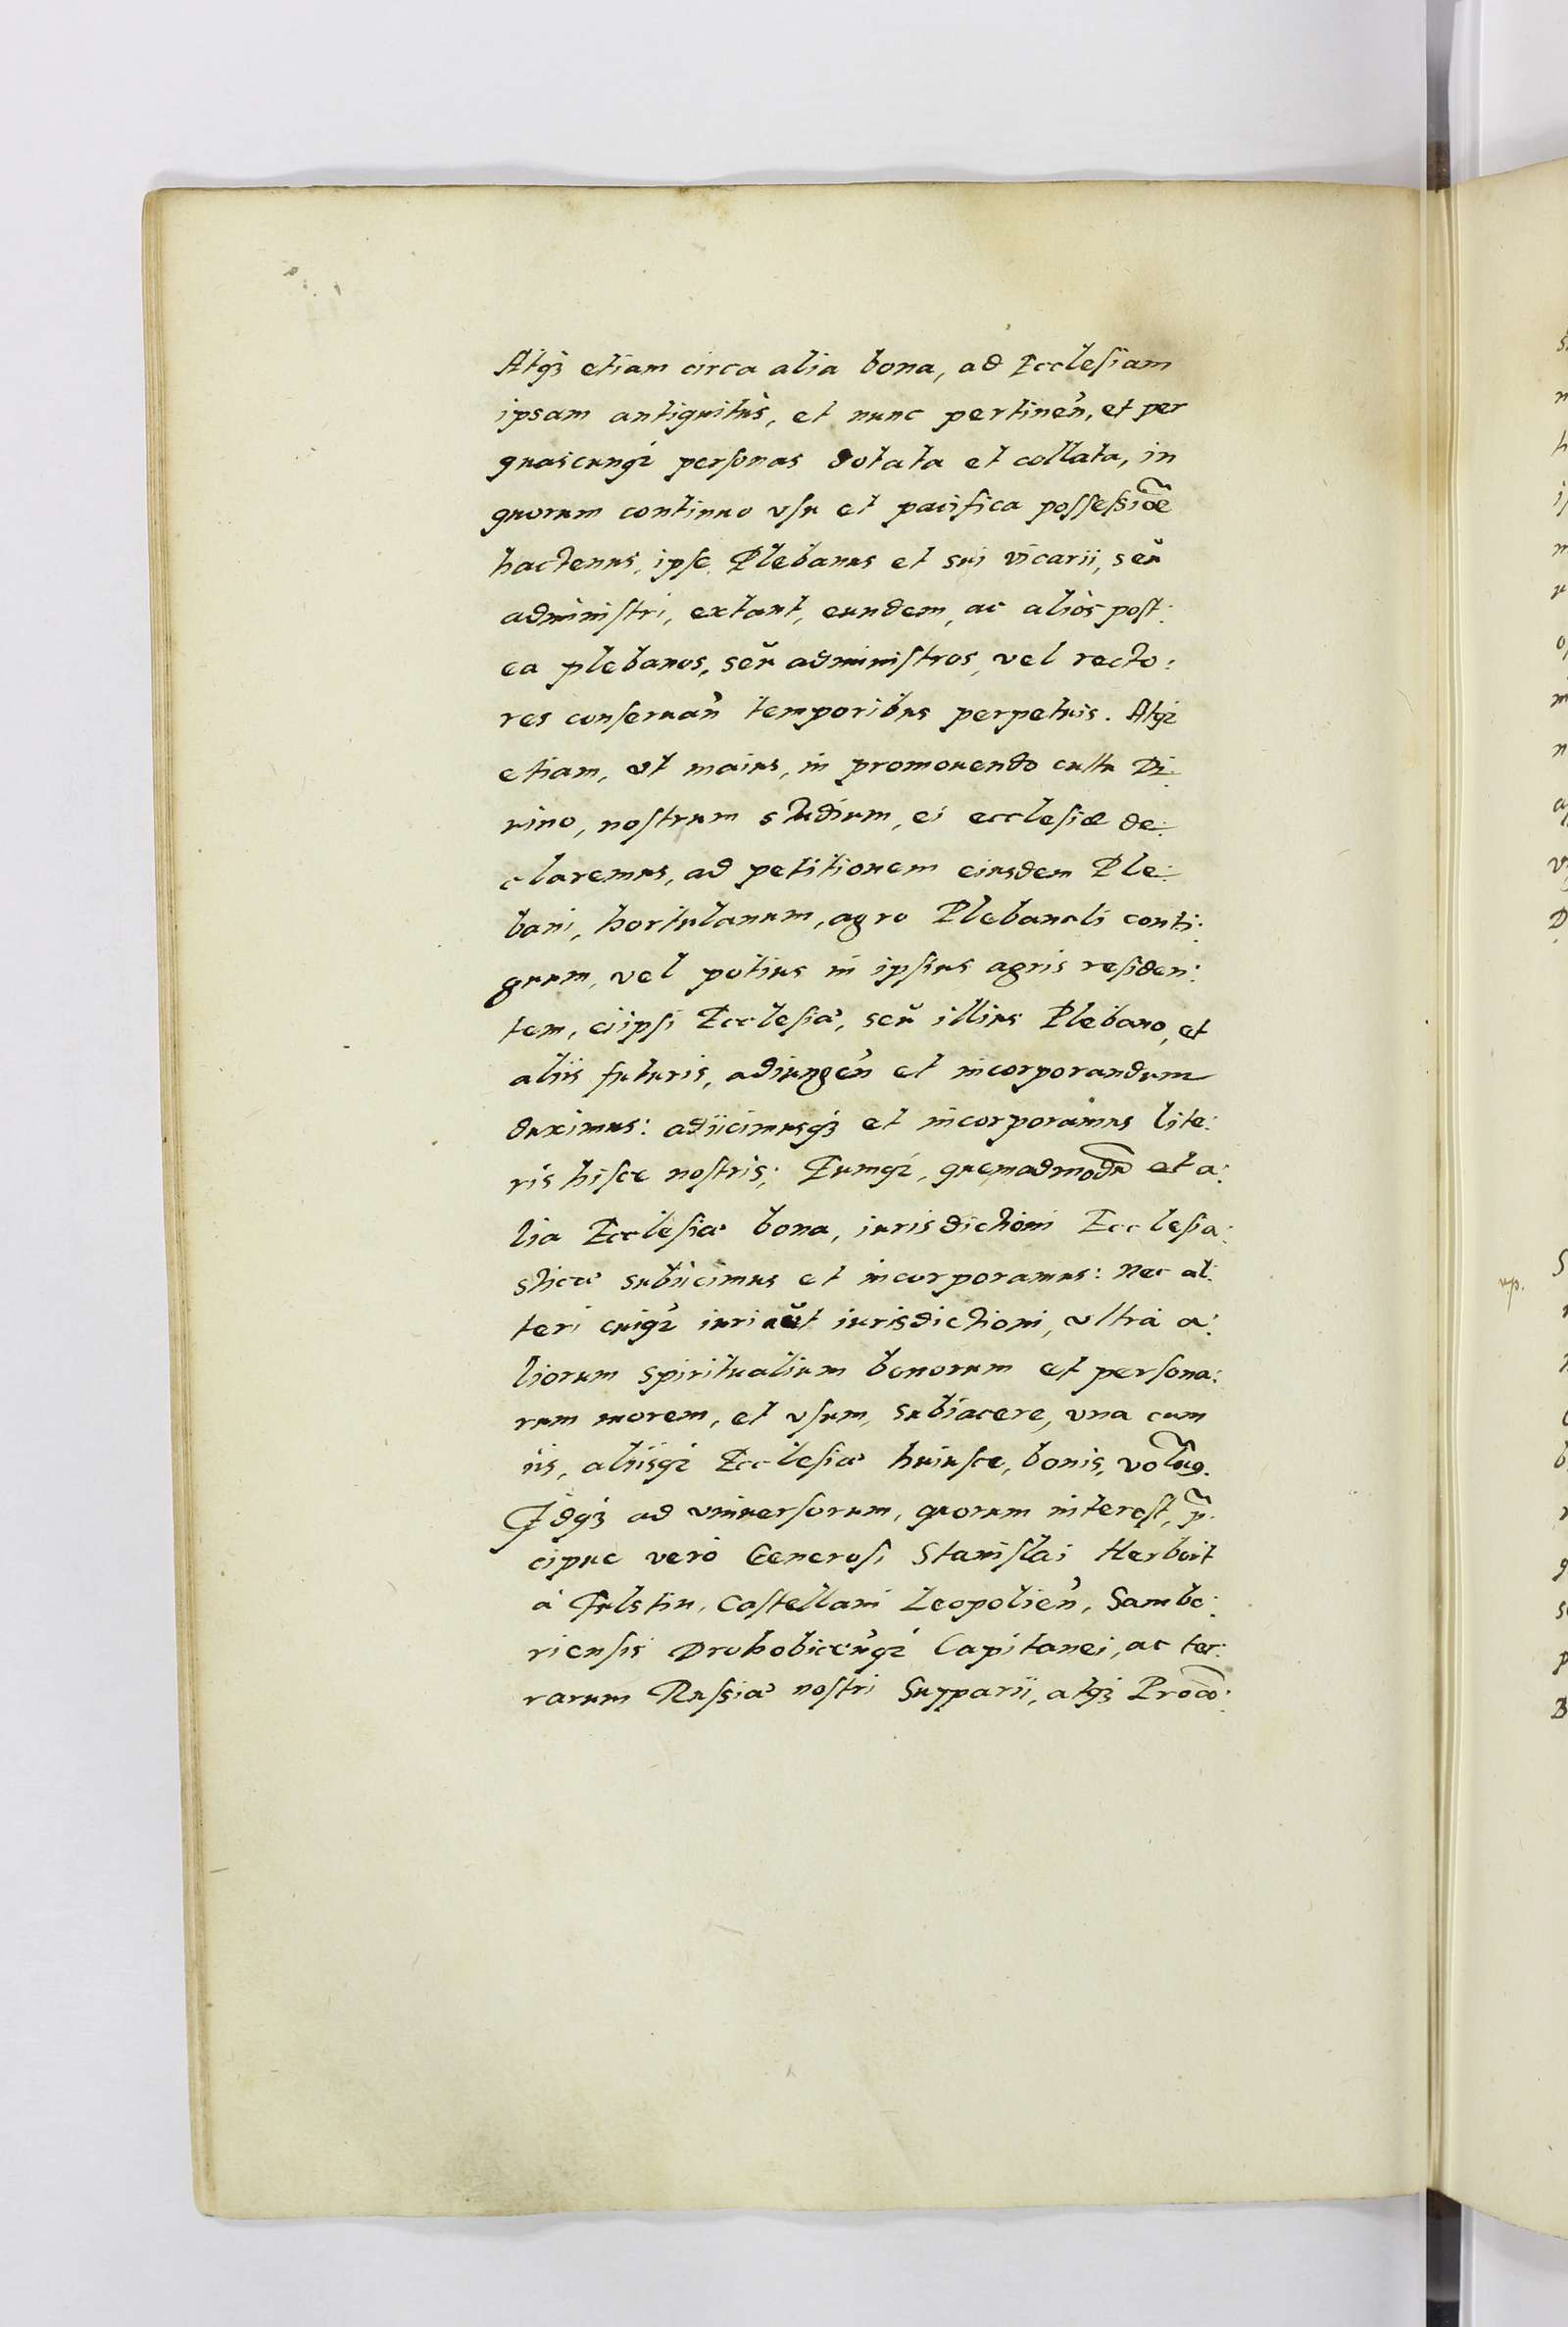 Atq3 etiam circa alia bona, ad Ecclesiam
ipsam antiquitùs, et nunc pertineń, et per
quascunq3 personas dotata et collata, in
quorum continuo vsu et pacifica possessiõe
hactenus, ipse Plebanus et sui vicarii, seu
administri, extant, eundem, ac aliòs post:
ea plebanos, seu administros, vel recto:
res conseruań temporibus perpetuis. Atq3
etiam, vt maius, in promouendo cultu Di:
uino, nostrum studium, ei ecclesiæ de:
claremus, ad petitionem eiusdem Ple:
bani, hortulanum, agro Plebanali conti:
guum, vel potius in ipsius agris residen:
tem, ei ipsi Ecclesiæ, seu illius Plebano, et
aliis futuris, adiungeń et incorporandum
duximus: adiicimusq3 et incorporamus lite:
ris hisce nostris; Eumq3, quemadmodũ et a:
lia Ecclesiæ bona, iurisdictioni Ecclesia:
sticæ subiicimus et incorporamus: Nec al:
teri cuiq3 iuri aut iurisdictioni, vltrà a:
liorum spiritualium bonorum et persona:
rum morem, et vsum, subiacere, vna cum
iis, aliisq3 Ecclesiæ huiusce, bonis, volũg.
Idq3 ad vniuersorum, quorum interest, p̃:
cipue verò Generosi Stanislai Herbort
à Fulstin, Castellani Leopolień, Sambo:
riensis Drohobiceńq3 Capitanei, ac ter:
rarum Russiæ nostri Supparii, atq3 Procõ:
up.